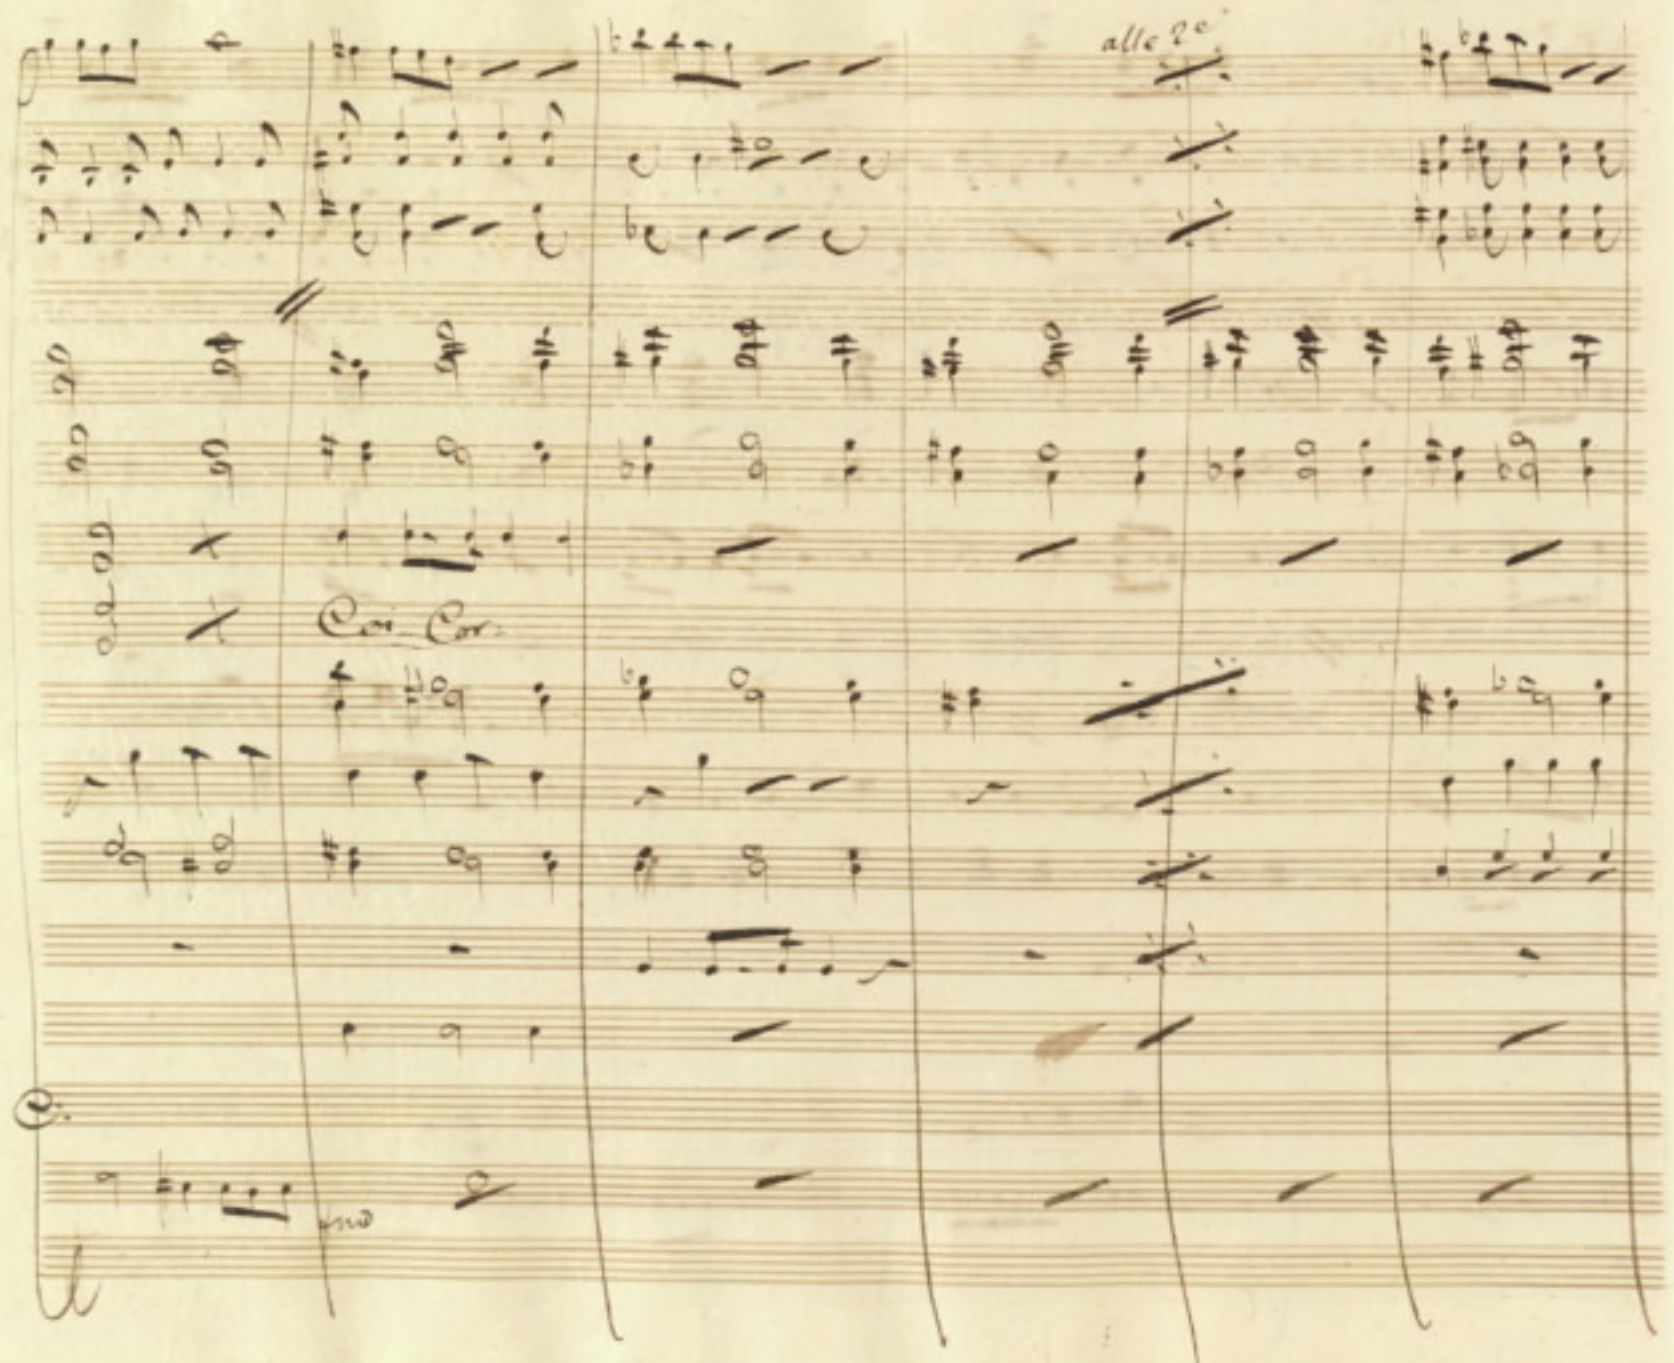 alle 2e
Coi Cor.